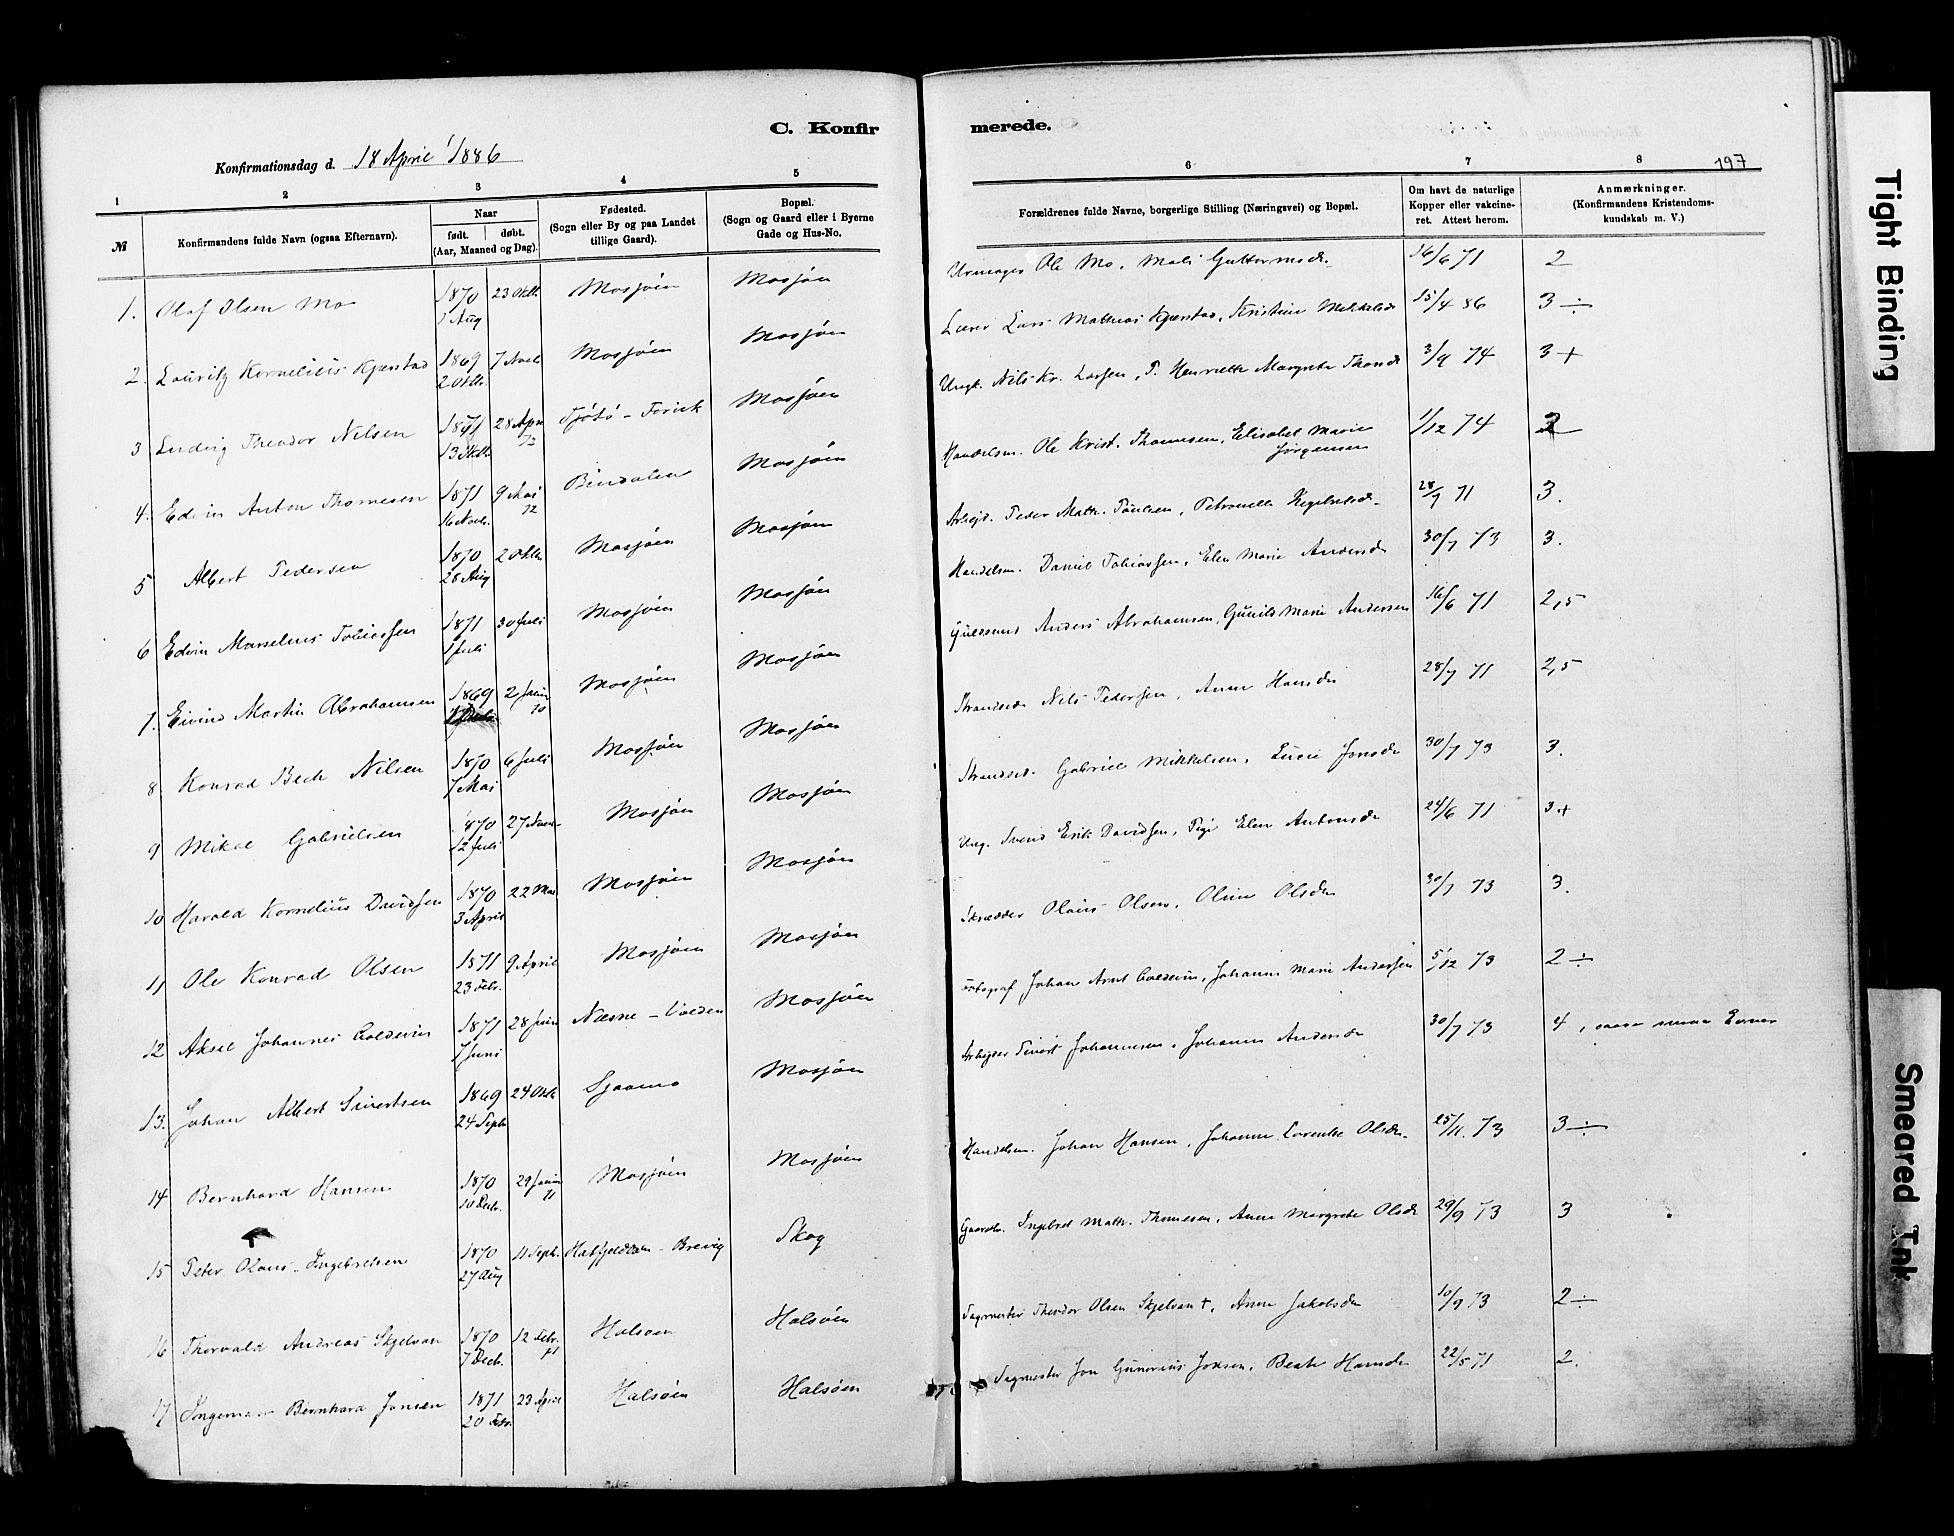 C. Konfirmerede.
Konfirmationsdag d. 18 April 1886
197
1 2 3 4 5 6 7 8
№
Konfirmandens fulde Navn (ogsaa Efternavn).
Naar
født. døbt.
(Aar, Maaned og Dag).
Fødested.
(Sogn eller By og paa Landet
tillige Gaard).
Bopæl.
(Sogn og Gaard eller i Byerne
Gade og Hus-No.
Forældrenes fulde Navne, borgerlige Stilling (Næringsvei) og Bopæl.
Om havt de naturlige
Kopper eller vakcine-
ret. Attest herom.
Anmærkninger.
(Konfirmandens Kristendoms-
kundskab m. V.)
1. Olaf Olsen Mo 1870 1 Aug 23 Oktb. Mosjøen Mosjøen Urmager Ole Mo, Mali Guttormsdr. 16/6 71 2
2. Lauritz Kornelius Kjærstad 1869 2 Oktb. 7 Novb. Mosjøen Mosjøen Lærer Lars Mathias Kjærstad, Kristine Mikkelsdr 15/4 86 3 ÷
3 Ludvig Theodor Nilsen 1871 13 Oktb. 28 Apr 72 Tjøtø - Mosjøen Ungk. Nils Kr. Larsen, P. Henriette Margrete Thomsdr 3/9 74 3 +
4. Edvin Anton Thomesen 1871 16 Novb. 9 Mai 72 Bindalen Mosjøen Handelsm. Ole Krist. Thomesen, Elisabet Marie Jørgensen 1/12 74 2
5 Albert Pedersen 1870 28 Aug 2 Oktb Mosjøen Mosjøen Arbejd. Peder Math. Paulsen, Petronelle 28/7 71 3.
6 Edvin Marselius Tobiassen 1871 1 Juli 30 Juli Mosjøen Mosjøen Handelsm. Daniel Tobiassen, Elen Marie Andersdr 30/7 73 3.
7. Eivind Martin Abrahamsen 1869 2 Januar 70 Mosjøen Mosjøen Guldsmed Anders Abrahamsen, Gunild Marie Andersen 16/6 71 2,5
8 Konrad Bech Nilsen 1870 7 Mai 6 Juli Mosjøen Mosjøen Strandsid. Nils Pedersen, Anne Hansdr 28/7 71 2,5
9 Mikal Gabrielsen 1870 12 Juli 27 Novb. Mosjøen Mosjøen Strandsid. Gabriel Mikkelsen, Lucie Jonsdr 30/7 73 3.
10 Harald Kornelius Davidsen 1870 3 April 22 Mai Mosjøen Mosjøen Ung. Svend Erik Davidsen, Pige Elen Antonsdr 24/6 71 3+
11 Ole Konrad Olsen 1871 23 Febr. 9 April Mosjøen Mosjøen Skrædder Olaus Olsen, Oline Olsdr 30/7 73 3.
12 Aksel Johannes Coldevin 1871 1 Juni 28 Juni Næsne - Mosjøen Fotograf Johan Arnt Coldevin, Johanne Marie Andersen 5/12 73 2 ÷
13. Johan Albert Sivertsen 1869 24 Septb. 24 Oktb. Mosjøen Arbejder Sivert Johannesen, Johanne Andersdr 30/7 73 4, svage Evner
14 Bernhard Hansen 1870 10 Decbr. 29 Januar 71 Mosjøen Mosjøen Handelsm. Johan Hansen, Johanne Lorentse Olsdr. 25/11. 73 3 ÷
15 Peter Olaus Ingebretsen 1870 27 Aug 11 Septb. Hatfjelddalen - Brevig Skog Gaardb. Ingebret Math. Thomesen, Anne Margrete Olsdr 29/9 73 3
16 Thorvald Andreas Skjelvan 1870 7 Decb. 12 Febr. 71 Halsøen Halsøen Sagmester Theodor Olsen Skjelvan †, Anne Jakobsdr 10/9 73 2 ÷
17 Ingemar Bernhard Jonsen 1871 20 Febr. 23 April Halsøen Halsøen Sagmester Jon Gunerius Jonsen, Beate Hansdr 22/5 71 2.
Tight Binding
Smeared Ink